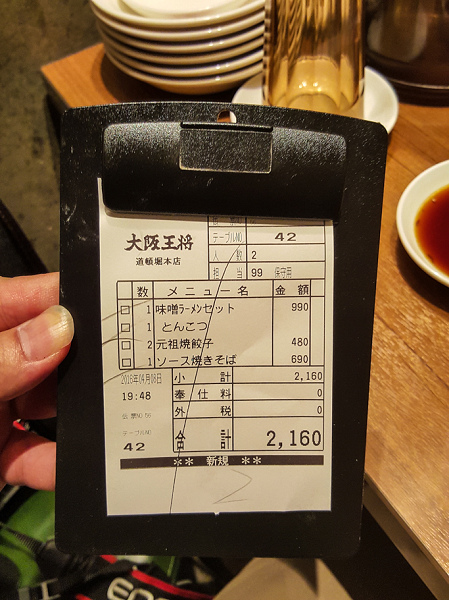 大阪王将
道頓堀本店
テーブルNO 42
人数 2
担当 99 保守用
数 メニュー名 金額
1 味噌ラーメンセット 990
1 とんこつ
2 元祖焼餃子 480
1 ソース焼きそば 690
2016年04月08日
19:48
伝票NO 56
テーブルNO
42
小計 2,160
奉仕料 0
外税 0
合計 2,160
** 新規 **
2